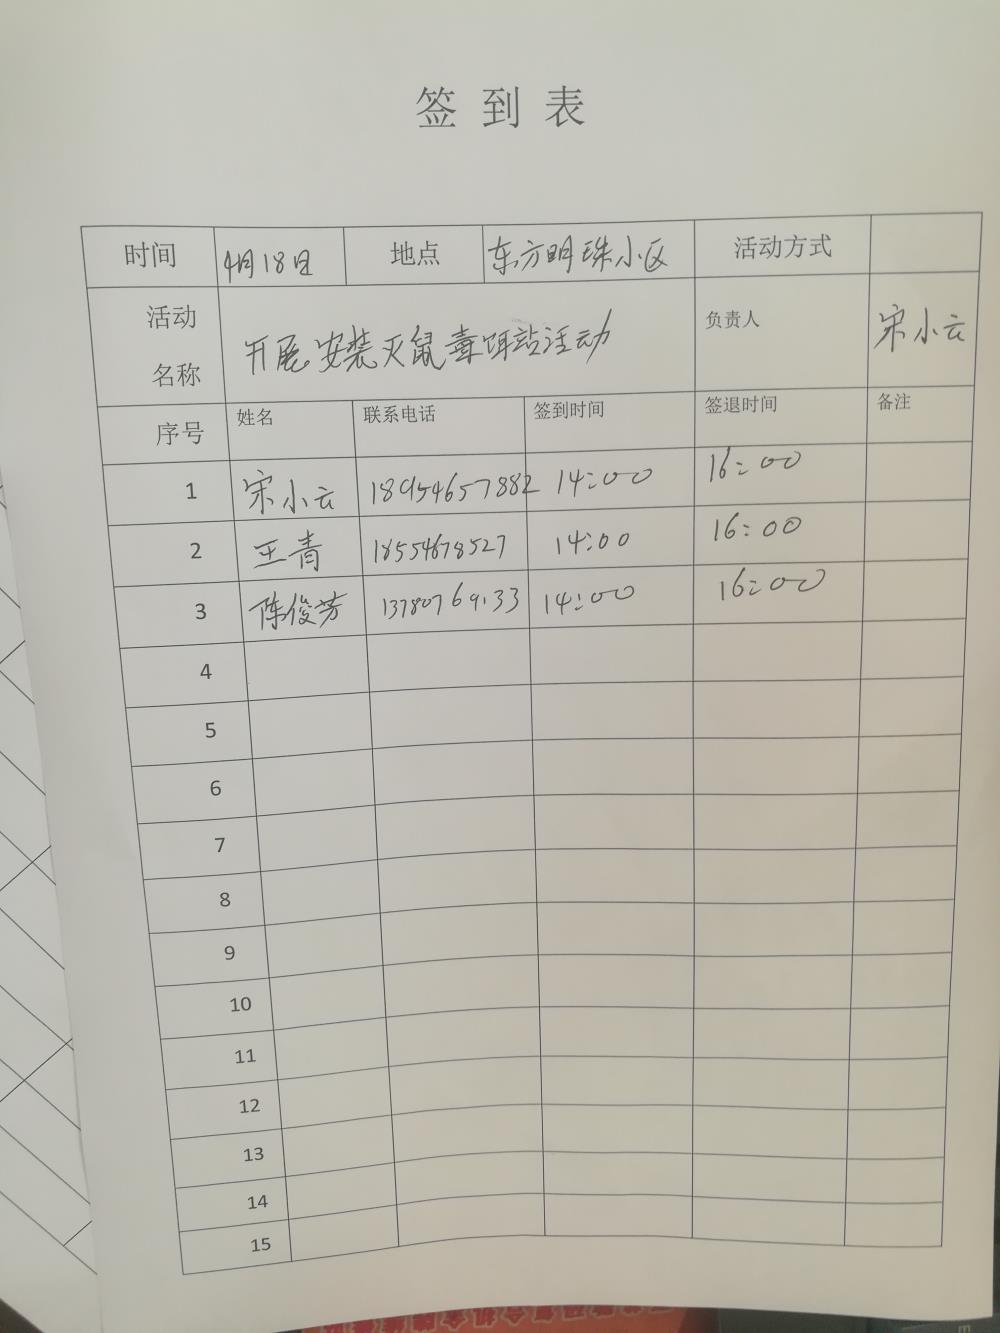 签到表
时间 4月18日 地点 东方明珠小区 活动方式
活动名称 开展安装灭鼠毒饵站活动 负责人 宋小云
序号 姓名 联系电话 签到时间 签退时间 备注
1 宋小云 18954657882 14:00 16:00
2 王青 18554678527 14:00 16:00
3 陈俊芳 13780769133 14:00 16:00
4
5
6
7
8
9
10
11
12
13
14
15